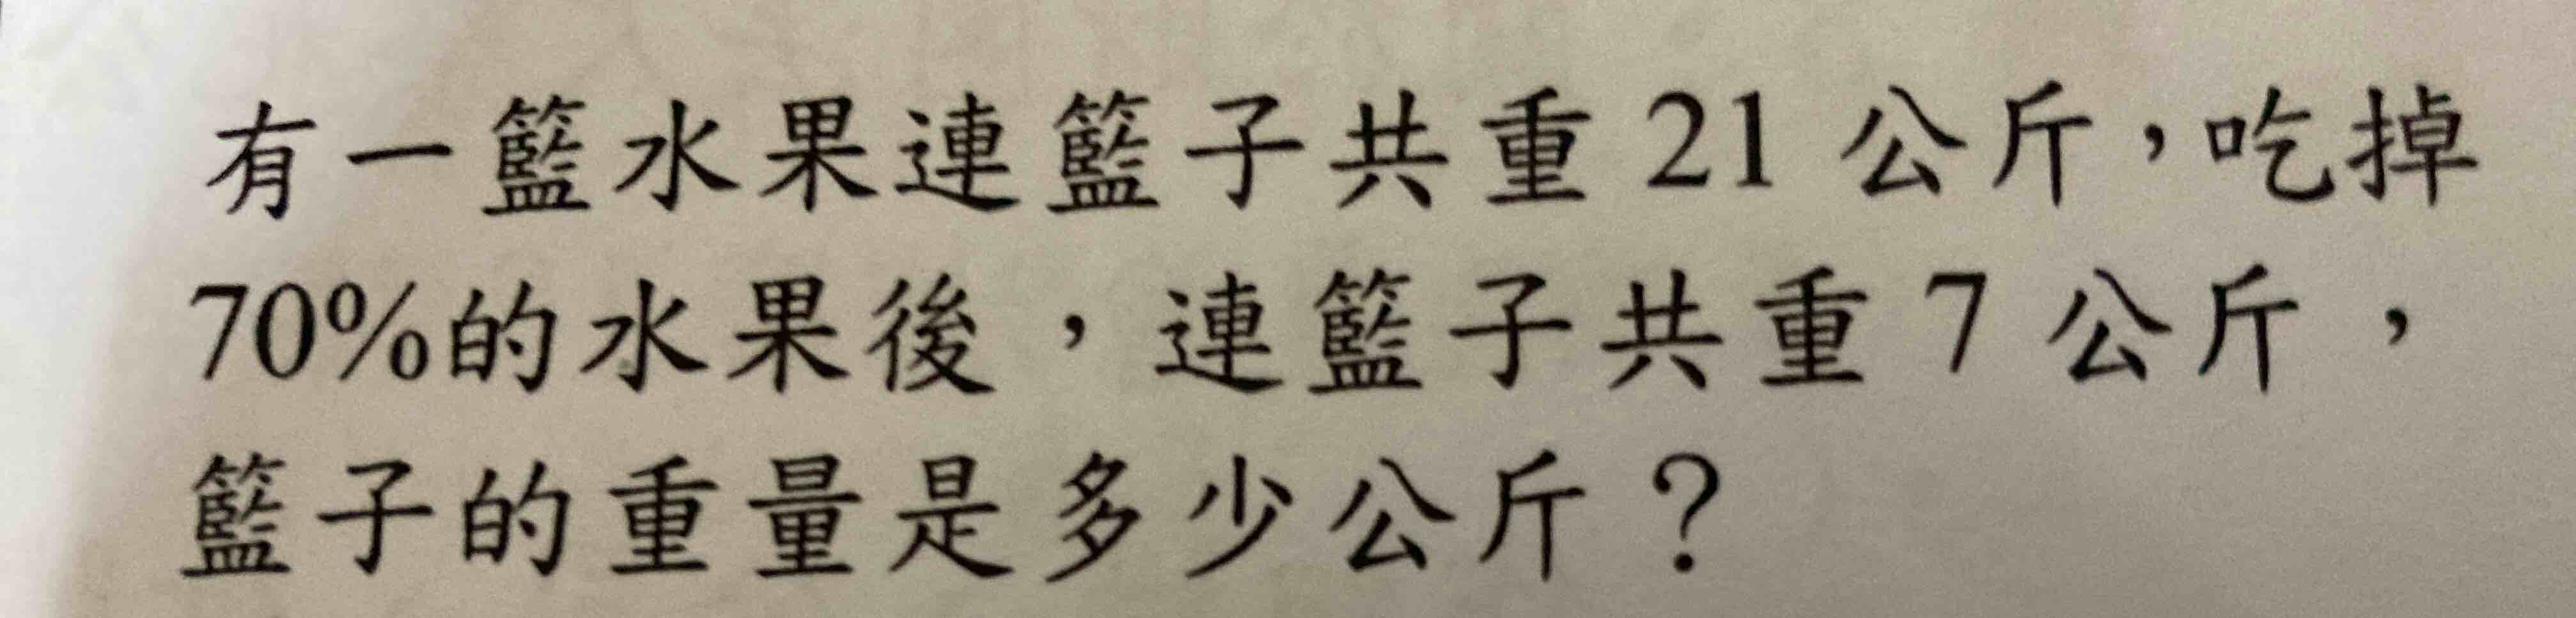 有一籃水果連籃子共重 21 公斤，吃掉
70%的水果後，連籃子共重 7 公斤，
籃子的重量是多少公斤？